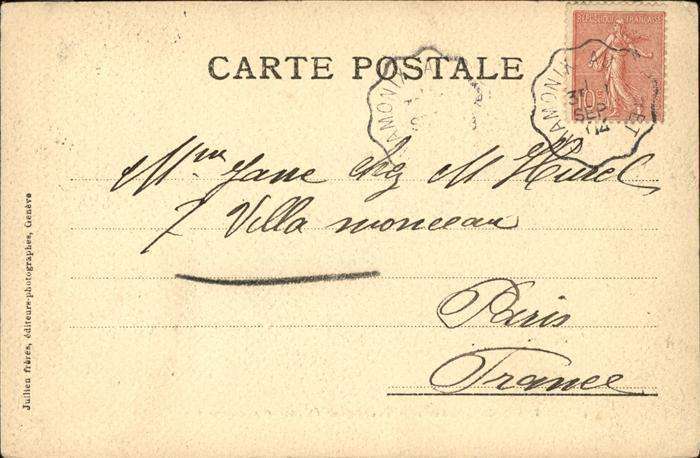 RÉPUBLIQUE FRANÇAISE
10c
CARTE POSTALE
CHAMONIX A
CHAMONIX A
30
SEPT
04
chez M Hurel
7 Villa monceau
Paris
France
Jullien frères, éditeurs-photographes, Genève